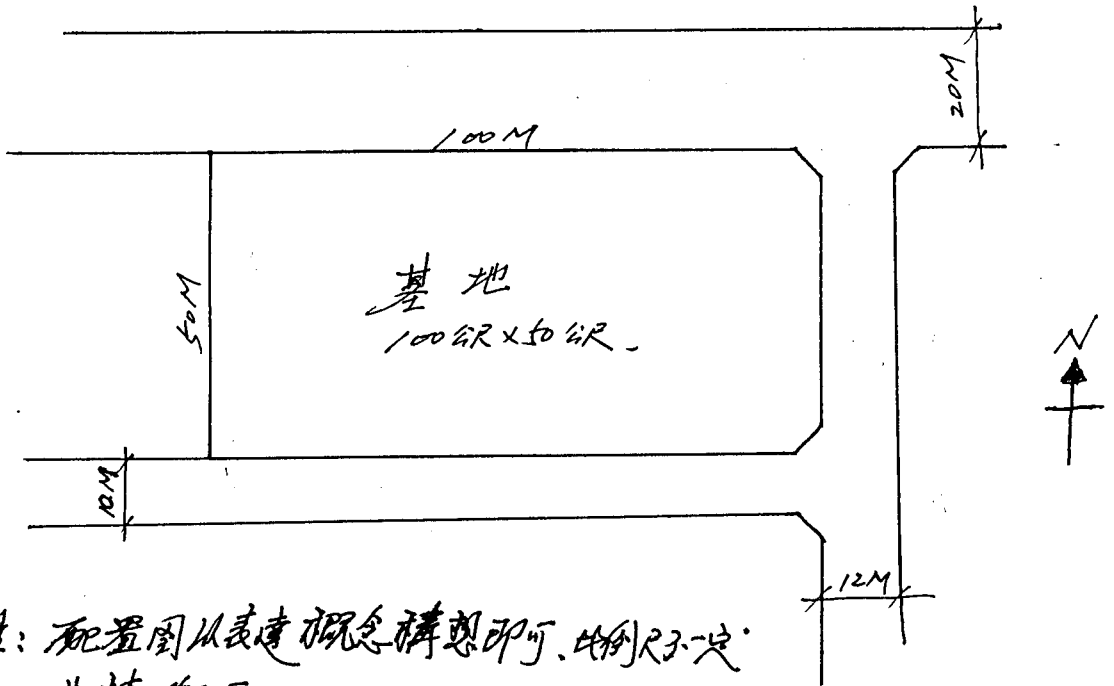 20M
100M
50M
基地
100公尺×50公尺.
N
12M
註: 配置圖以表達概念構想即可、比例尺不一定